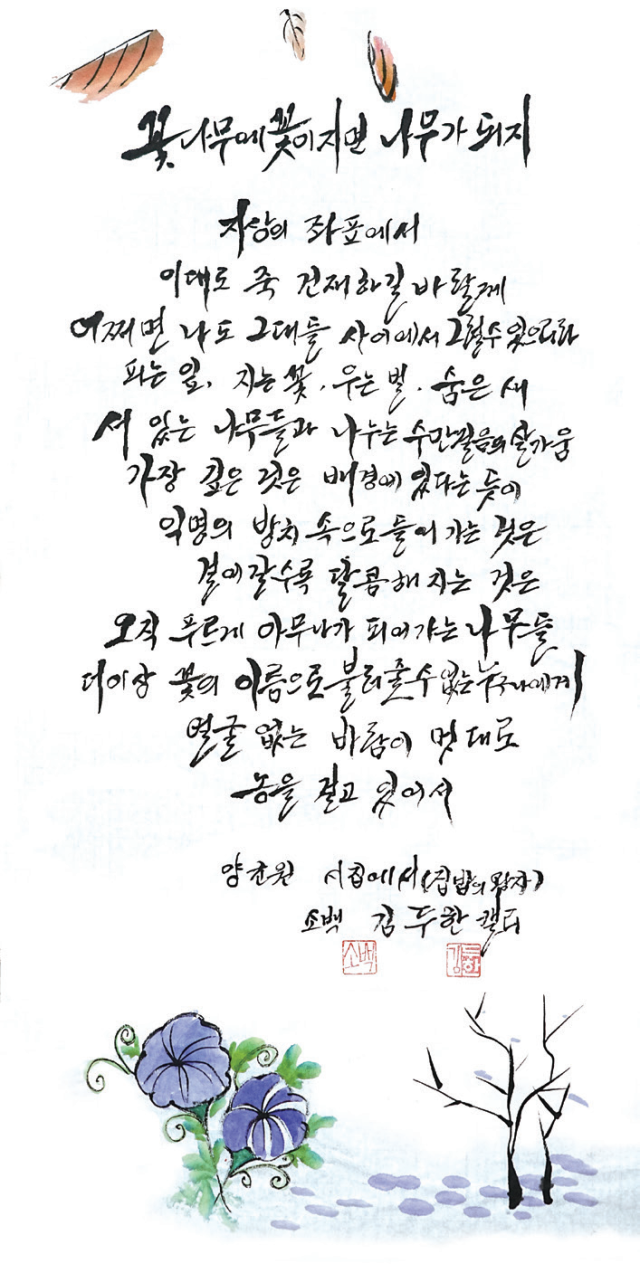 꽃나무에 꽃이 지면 나무가 되지
지상의 좌표에서
이대로 죽 건재하길 바랄게
어쩌면 나도 그대들 사이에서 그럴 수 있으리라
피는 잎, 지는 꽃, 우는 벌, 숨은 새
서 있는 나무들과 나누는 수만 걸음의 살가움
가장 깊은 것은 배경에 있다는 듯이
익명의 방치 속으로 들어가는 것은
곁에 갈수록 달콤해지는 것은
오직 푸르게 아무나가 되어가는 나무들
더이상 꽃의 이름으로 불러줄 수 없는 누구나에게
얼굴 없는 바람이 멋대로
농을 걸고 있어서
양균원 시집에서 (집밥의 왕자)
소백 김두한 캘리
소백 김두한